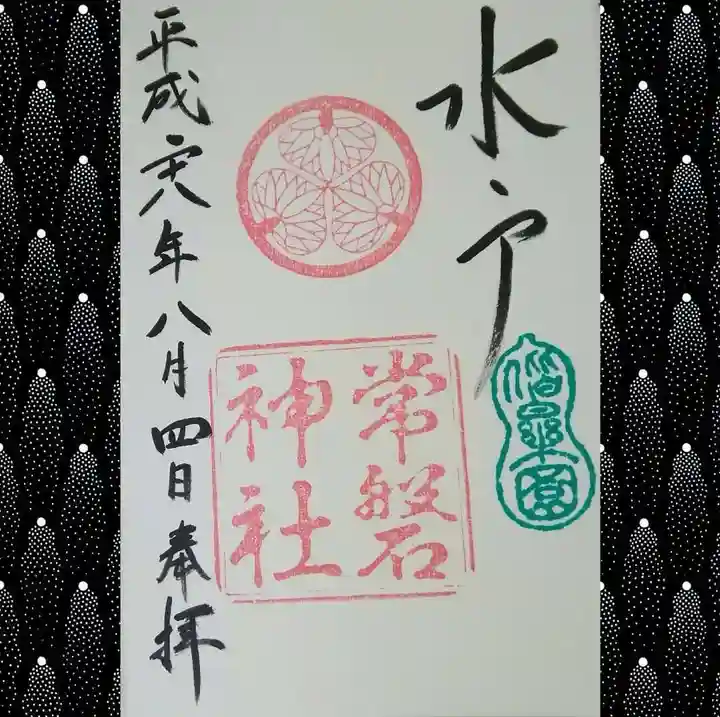 水戸
偕楽園
常磐
神社
平成廿八年八月四日奉拝